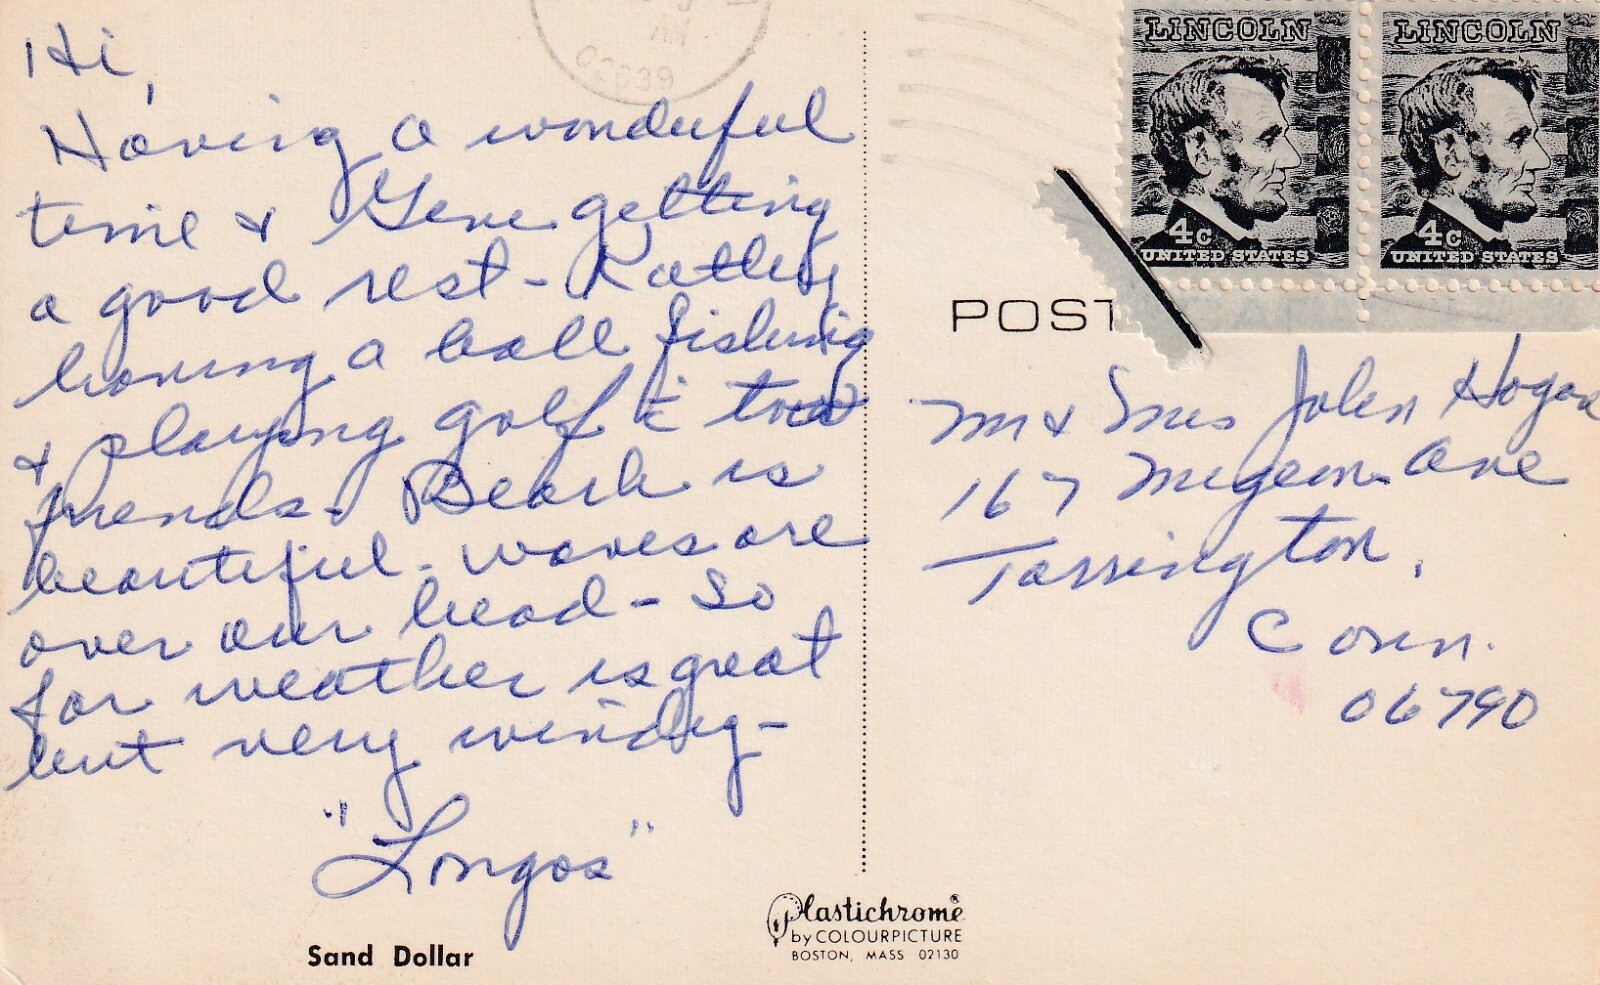 Hi,
Having a wonderful
time & Gene getting
a good rest - Kathy
having a ball fishing
& playing golf c̄ two
friends - Beach is
beautiful - waves are
over our head - So
far weather is great
but very windy -
"Longos"
Sand Dollar
AM
02039
LINCOLN
4c
UNITED STATES
LINCOLN
4c
UNITED STATES
POST
Mr & Mrs John Hogan
167 Migeon Ave
Torrington,
Conn.
06790
Plastichrome®
by COLOURPICTURE
BOSTON, MASS 02130